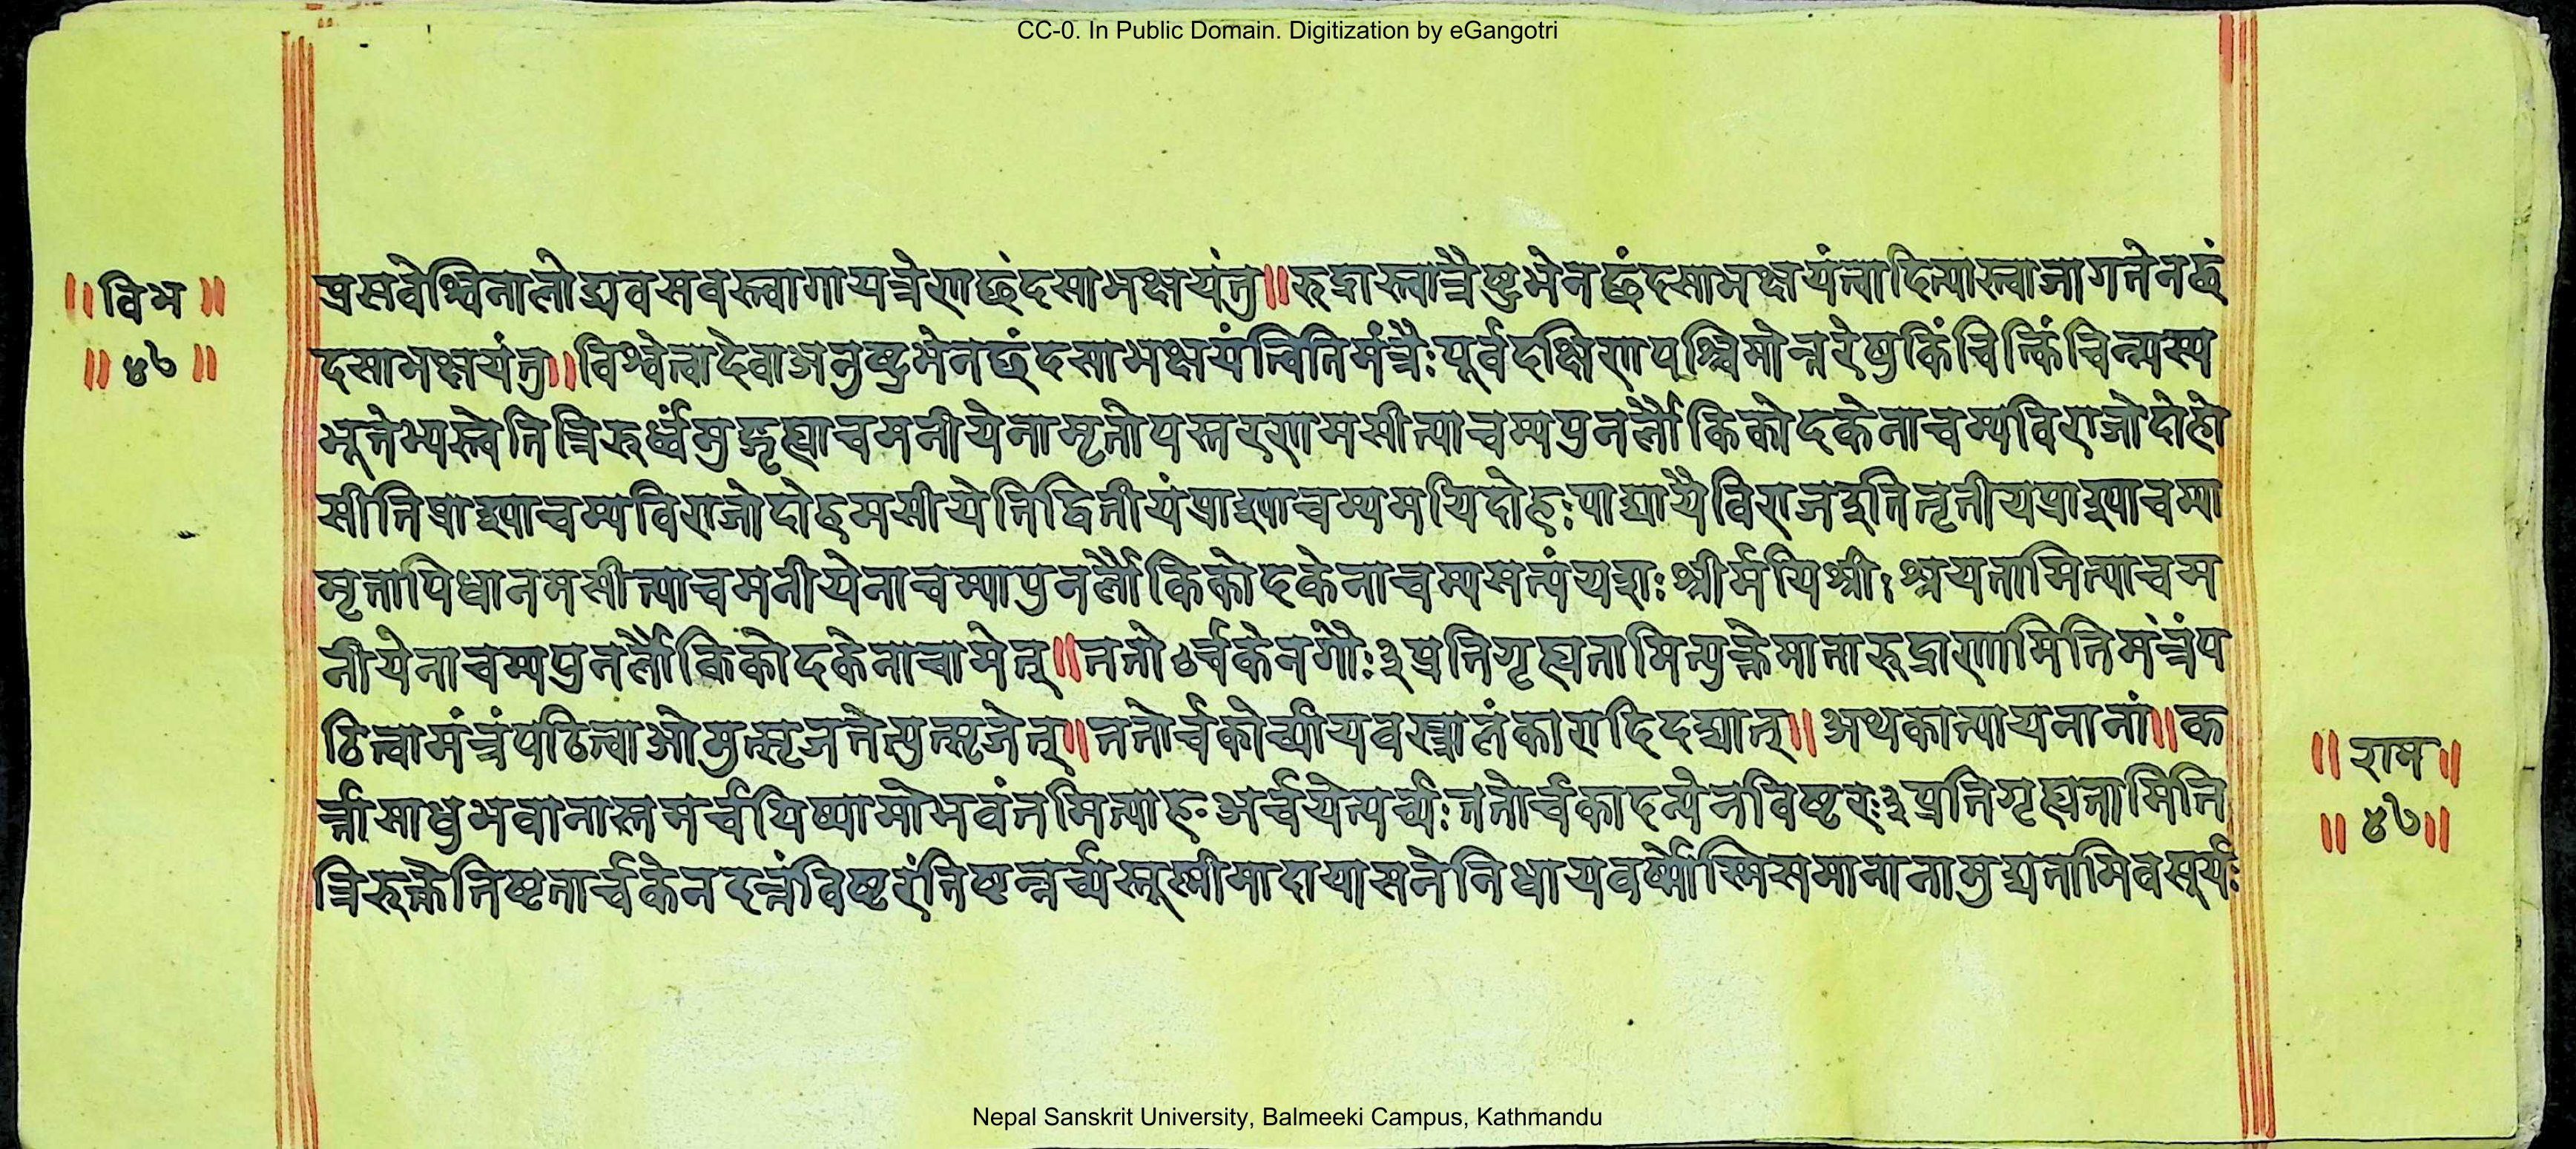 CC-0. In Public Domain. Digitization by eGangotri
॥विभ॥
॥४७॥
प्रसवेश्विनालोड्यवसवस्त्वागायत्रेणछंदसाभक्षयंतु॥रुद्रास्त्वात्रैष्टुभेनछंदसाभक्षयंत्वादित्यास्त्वाजागतेनछं
दसाभक्षयंतु॥विश्वेत्वादेवाअनुष्टुभेनछंदसाभक्षयंत्वितिमंत्रैःपूर्वदक्षिणपश्चिमोत्तरेषुकिंचित्किंचिन्न्यस्य
भूतेभ्यस्त्वेतित्रिरुर्ध्वंमुद्गृह्याचमनीयेनामृतोपस्तरणमसीत्याचम्यपुनर्लौकिकोदकेनाचम्यविराजोदोहो
सीतिप्राश्याचम्यविराजोदोहमसीयेतिद्वितीयंप्राश्याचम्यमयिदोहःपाद्यायैविराजइतितृतीयप्राश्याचम्या
मृतापिधानमसीत्याचमनीयेनाचम्यापुनर्लौकिकोदकेनाचम्यसत्यंयशःश्रीर्मयिश्रीःश्रयतामित्याचम
नीयेनाचम्यपुनर्लौकिकोदकेनाचामेत्॥ततोऽर्चकेनगौः३प्रतिगृह्यतामित्युक्तेमातारुद्राणामितिमंत्रंप
ठित्वामंत्रंपठित्वाओमुत्सृजतेत्युत्सृजेत्॥ततोर्चकोर्च्यायवस्त्रालंकारादिदद्यात्॥अथकात्यायनानां॥क
र्त्रासाधुभवानास्तमर्चयिष्यामोभवंतमित्याहःअर्चयेत्यर्च्यःततोर्चकादन्येनविष्टरः३प्रतिगृह्यतामिति
त्रिरुक्तेतिष्टतार्चकेनदत्तंविष्टरंतिष्टन्नर्च्यस्तूस्मीमादायासनेनिधायवर्ष्मोस्मिसमानानामुद्यतामिवसूर्यः
॥राम॥
॥४७॥
Nepal Sanskrit University, Balmeeki Campus, Kathmandu